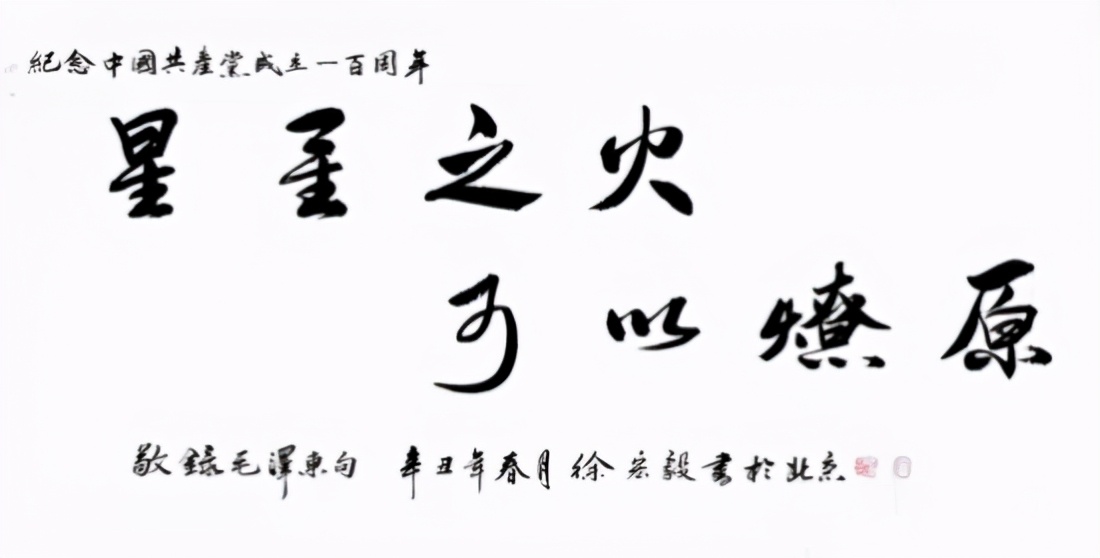 紀念中國共產黨成立一百周年
星星之火
可以燎原
敬錄毛澤東句 辛丑年春月徐宏毅書於北京